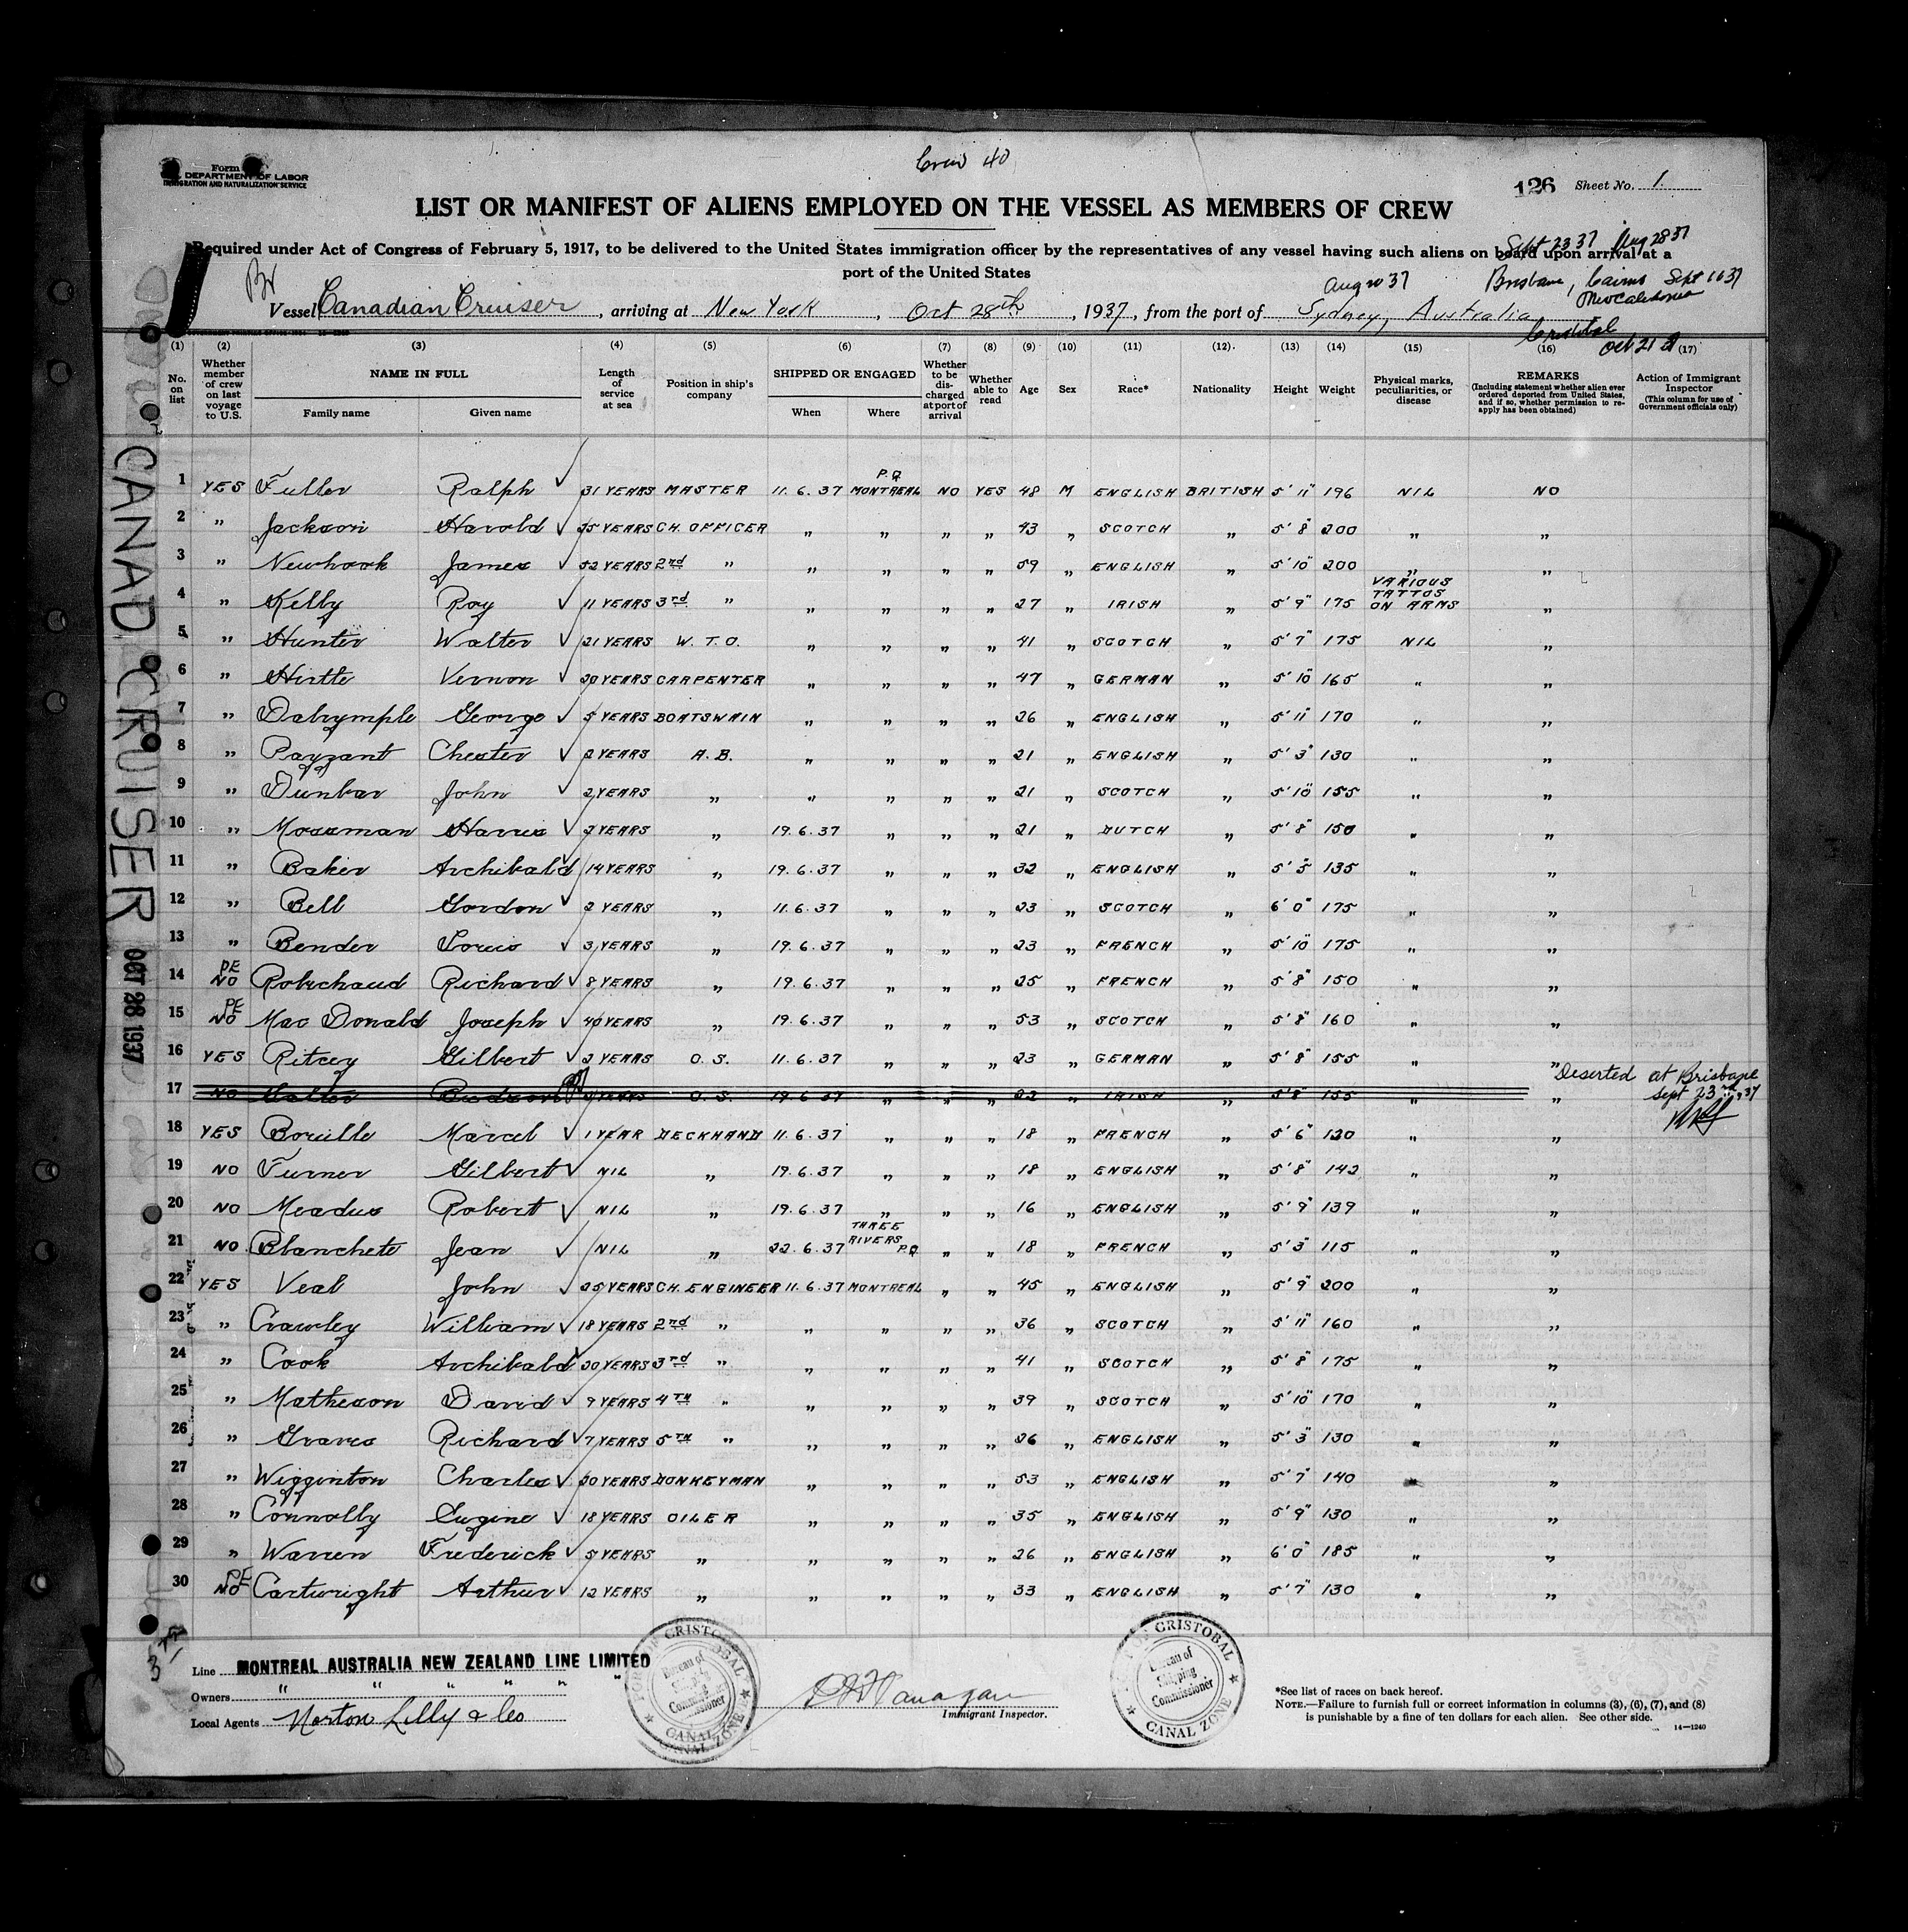 Crew 40
Form
DEPARTMENT OF LABOR
IMMIGRATION AND NATURALIZATION SERVICE
126 Sheet No. 1.
LIST OR MANIFEST OF ALIENS EMPLOYED ON THE VESSEL AS MEMBERS OF CREW
Required under Act of Congress of February 5, 1917, to be delivered to the United States immigration officer by the representatives of any vessel having such aliens on board upon arrival at a
port of the United States
Sept 23 37 Aug 28 37
Brisbane, Cairns Sept 16 37
New Caledonia
Br
Vessel Canadian Cruiser, arriving at New York, Oct 28th, 1937, from the port of Sydney, Australia
Cristobal
Oct 21
(1) (2) (3) (4) (5) (6) (7) (8) (9) (10) (11) (12) (13) (14) (15) (16) (17)
No. on list
Whether member of crew on last voyage to U.S.
NAME IN FULL
Family name Given name
Length of service at sea
Position in ship's company
SHIPPED OR ENGAGED
When Where
Whether to be discharged at port of arrival
Whether able to read
Age
Sex
Race*
Nationality
Height
Weight
Physical marks, peculiarities, or disease
REMARKS
(Including statement whether alien ever ordered deported from United States, and if so, whether permission to reapply has been obtained)
Action of Immigrant Inspector
(This column for use of Government officials only)
1 YES Fuller Ralph 31 YEARS MASTER 11.6.37 MONTREAL P.Q NO YES 48 M ENGLISH BRITISH 5' 11" 196 NIL NO
2 " Jackson Harold 25 YEARS CH. OFFICER " " " " 43 " SCOTCH " 5' 8" 200 " "
3 " Newhook James 52 YEARS 2nd " " " " " 59 " ENGLISH " 5' 10" 200 " "
4 " Kelly Roy 11 YEARS 3rd " " " " " 27 " IRISH " 5' 9" 175 VARIOUS TATTOS ON ARMS "
5 " Hunter Walter 21 YEARS W.T.O. " " " " 41 " SCOTCH " 5' 7" 175 NIL "
6 " Hirtle Vernon 20 YEARS CARPENTER " " " " 47 " GERMAN " 5' 10" 165 " "
7 " Dalrymple George 5 YEARS BOATSWAIN " " " " 26 " ENGLISH " 5' 11" 170 " "
8 " Payzant Chester 2 YEARS A.B. " " " " 21 " ENGLISH " 5' 3" 130 " "
9 " Dunbar John 2 YEARS " " " " " 21 " SCOTCH " 5' 10" 155 " "
10 " Mossman Harris 2 YEARS " 19.6.37 " " " 21 " DUTCH " 5' 8" 150 " "
11 " Baker Archibald 14 YEARS " 19.6.37 " " " 32 " ENGLISH " 5' 5" 135 " "
12 " Bell Gordon 2 YEARS " 11.6.37 " " " 23 " SCOTCH " 6' 0" 175 " "
13 " Bender Louis 3 YEARS " 19.6.37 " " " 23 " FRENCH " 5' 10" 175 " "
14 PE NO Robichaud Richard 8 YEARS " 19.6.37 " " " 25 " FRENCH " 5' 8" 150 " "
15 PE NO Mac Donald Joseph 40 YEARS " 19.6.37 " " " 53 " SCOTCH " 5' 8" 160 " "
16 YES Ritcey Gilbert 2 YEARS O.S. 11.6.37 " " " 23 " GERMAN " 5' 8" 155 " "
17 NO YEARS O.S. 19.6.37 " " " 22 " IRISH " 5' 8" 155 " " Deserted at Brisbane Sept 23rd 37
18 YES Boville Marcel 1 YEAR DECKHAND 11.6.37 " " " 18 " FRENCH " 5' 6" 120 " "
19 NO Turner Gilbert NIL " 19.6.37 " " " 18 " ENGLISH " 5' 8" 142 " "
20 NO Meadus Robert NIL " 19.6.37 " " " 16 " ENGLISH " 5' 9" 139 " "
21 NO Blanchete Jean NIL " 22.6.37 THREE RIVERS P.Q " " 18 " FRENCH " 5' 3" 115 " "
22 YES Veal John 25 YEARS CH. ENGINEER 11.6.37 MONTREAL " " 45 " ENGLISH " 5' 9" 200 " "
23 " Crawley William 18 YEARS 2nd " " " " " 36 " SCOTCH " 5' 11" 160 " "
24 " Cook Archibald 20 YEARS 3rd " " " " " 41 " SCOTCH " 5' 8" 175 " "
25 " Matheson David 9 YEARS 4TH " " " " " 39 " SCOTCH " 5' 10" 170 " "
26 " Graves Richard 7 YEARS 5TH " " " " " 26 " ENGLISH " 5' 3" 130 " "
27 " Wigginton Charles 20 YEARS DONKEYMAN " " " " 53 " ENGLISH " 5' 7" 140 " "
28 " Connolly Eugine 18 YEARS OILER " " " " 35 " ENGLISH " 5' 9" 130 " "
29 " Warren Frederick 5 YEARS " " " " " 26 " ENGLISH " 6' 0" 185 " "
30 PE NO Cartwright Arthur 12 YEARS " " " " " 33 " ENGLISH " 5' 7" 130 " "
CANAD CRUISER OCT 28 1937
Line MONTREAL AUSTRALIA NEW ZEALAND LINE LIMITED
Owners " " " " " "
Local Agents Norton Lilly & Co
PORT OF CRISTOBAL
Bureau of Shipping Commissioner
CANAL ZONE
Immigrant Inspector.
PORT OF CRISTOBAL
Bureau of Shipping Commissioner
CANAL ZONE
*See list of races on back hereof.
NOTE.—Failure to furnish full or correct information in columns (3), (6), (7), and (8)
is punishable by a fine of ten dollars for each alien. See other side.
14—1240